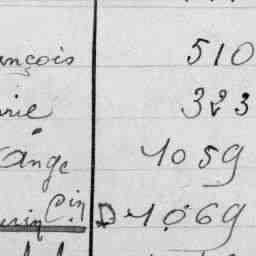 ançois 510
rie 323
ange 1059
Cin D 1.069